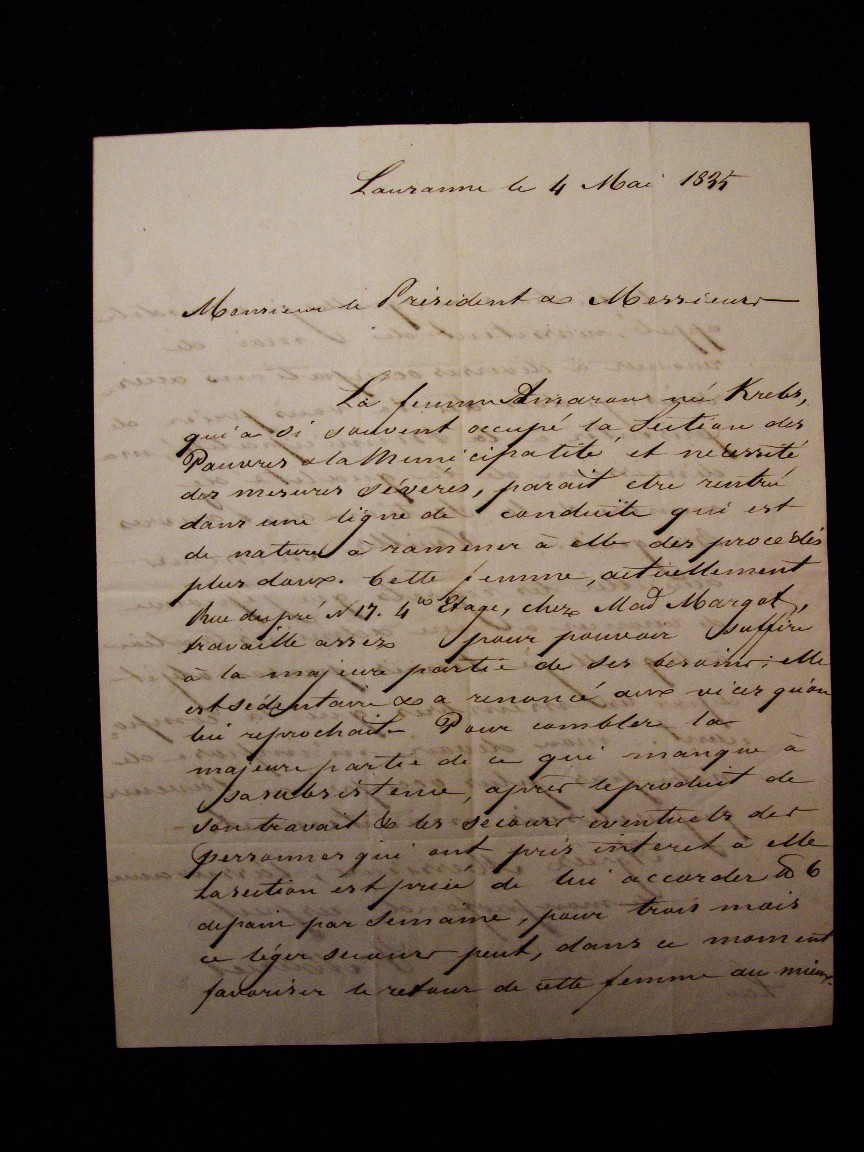 Lausanne le 4 Mai 1835
Monsieur le Président & Messieurs
La femme Amaron né Krebs,
qui a si souvent occupé la Section des
Pauvres & la Municipalité et nécessité
des mesures sévères, parait etre rentré
dans une ligne de conduite qui est
de nature à ramener à elle des procédés
plus doux. Cette femme, actuellement
Rue du pré N 17. 4me Etage, chez Mad Margot,
travaille assez pour pouvoir suffire
à la majeure partie de ses besoins; elle
est sédentaire & a renoncé aux vices qu'on
lui reprochait. Pour combler la
majeure partie de ce qui manque à
sa subsistence, après le produit de
son travail & les secours eventuels des
personnes qui ont pris interet à elle
la section est prié de lui accorder ℔ 6
de pain par semaine, pour trois mois
ce léger secours peut, dans ce moment
favoriser le retour de cette femme au mieux.